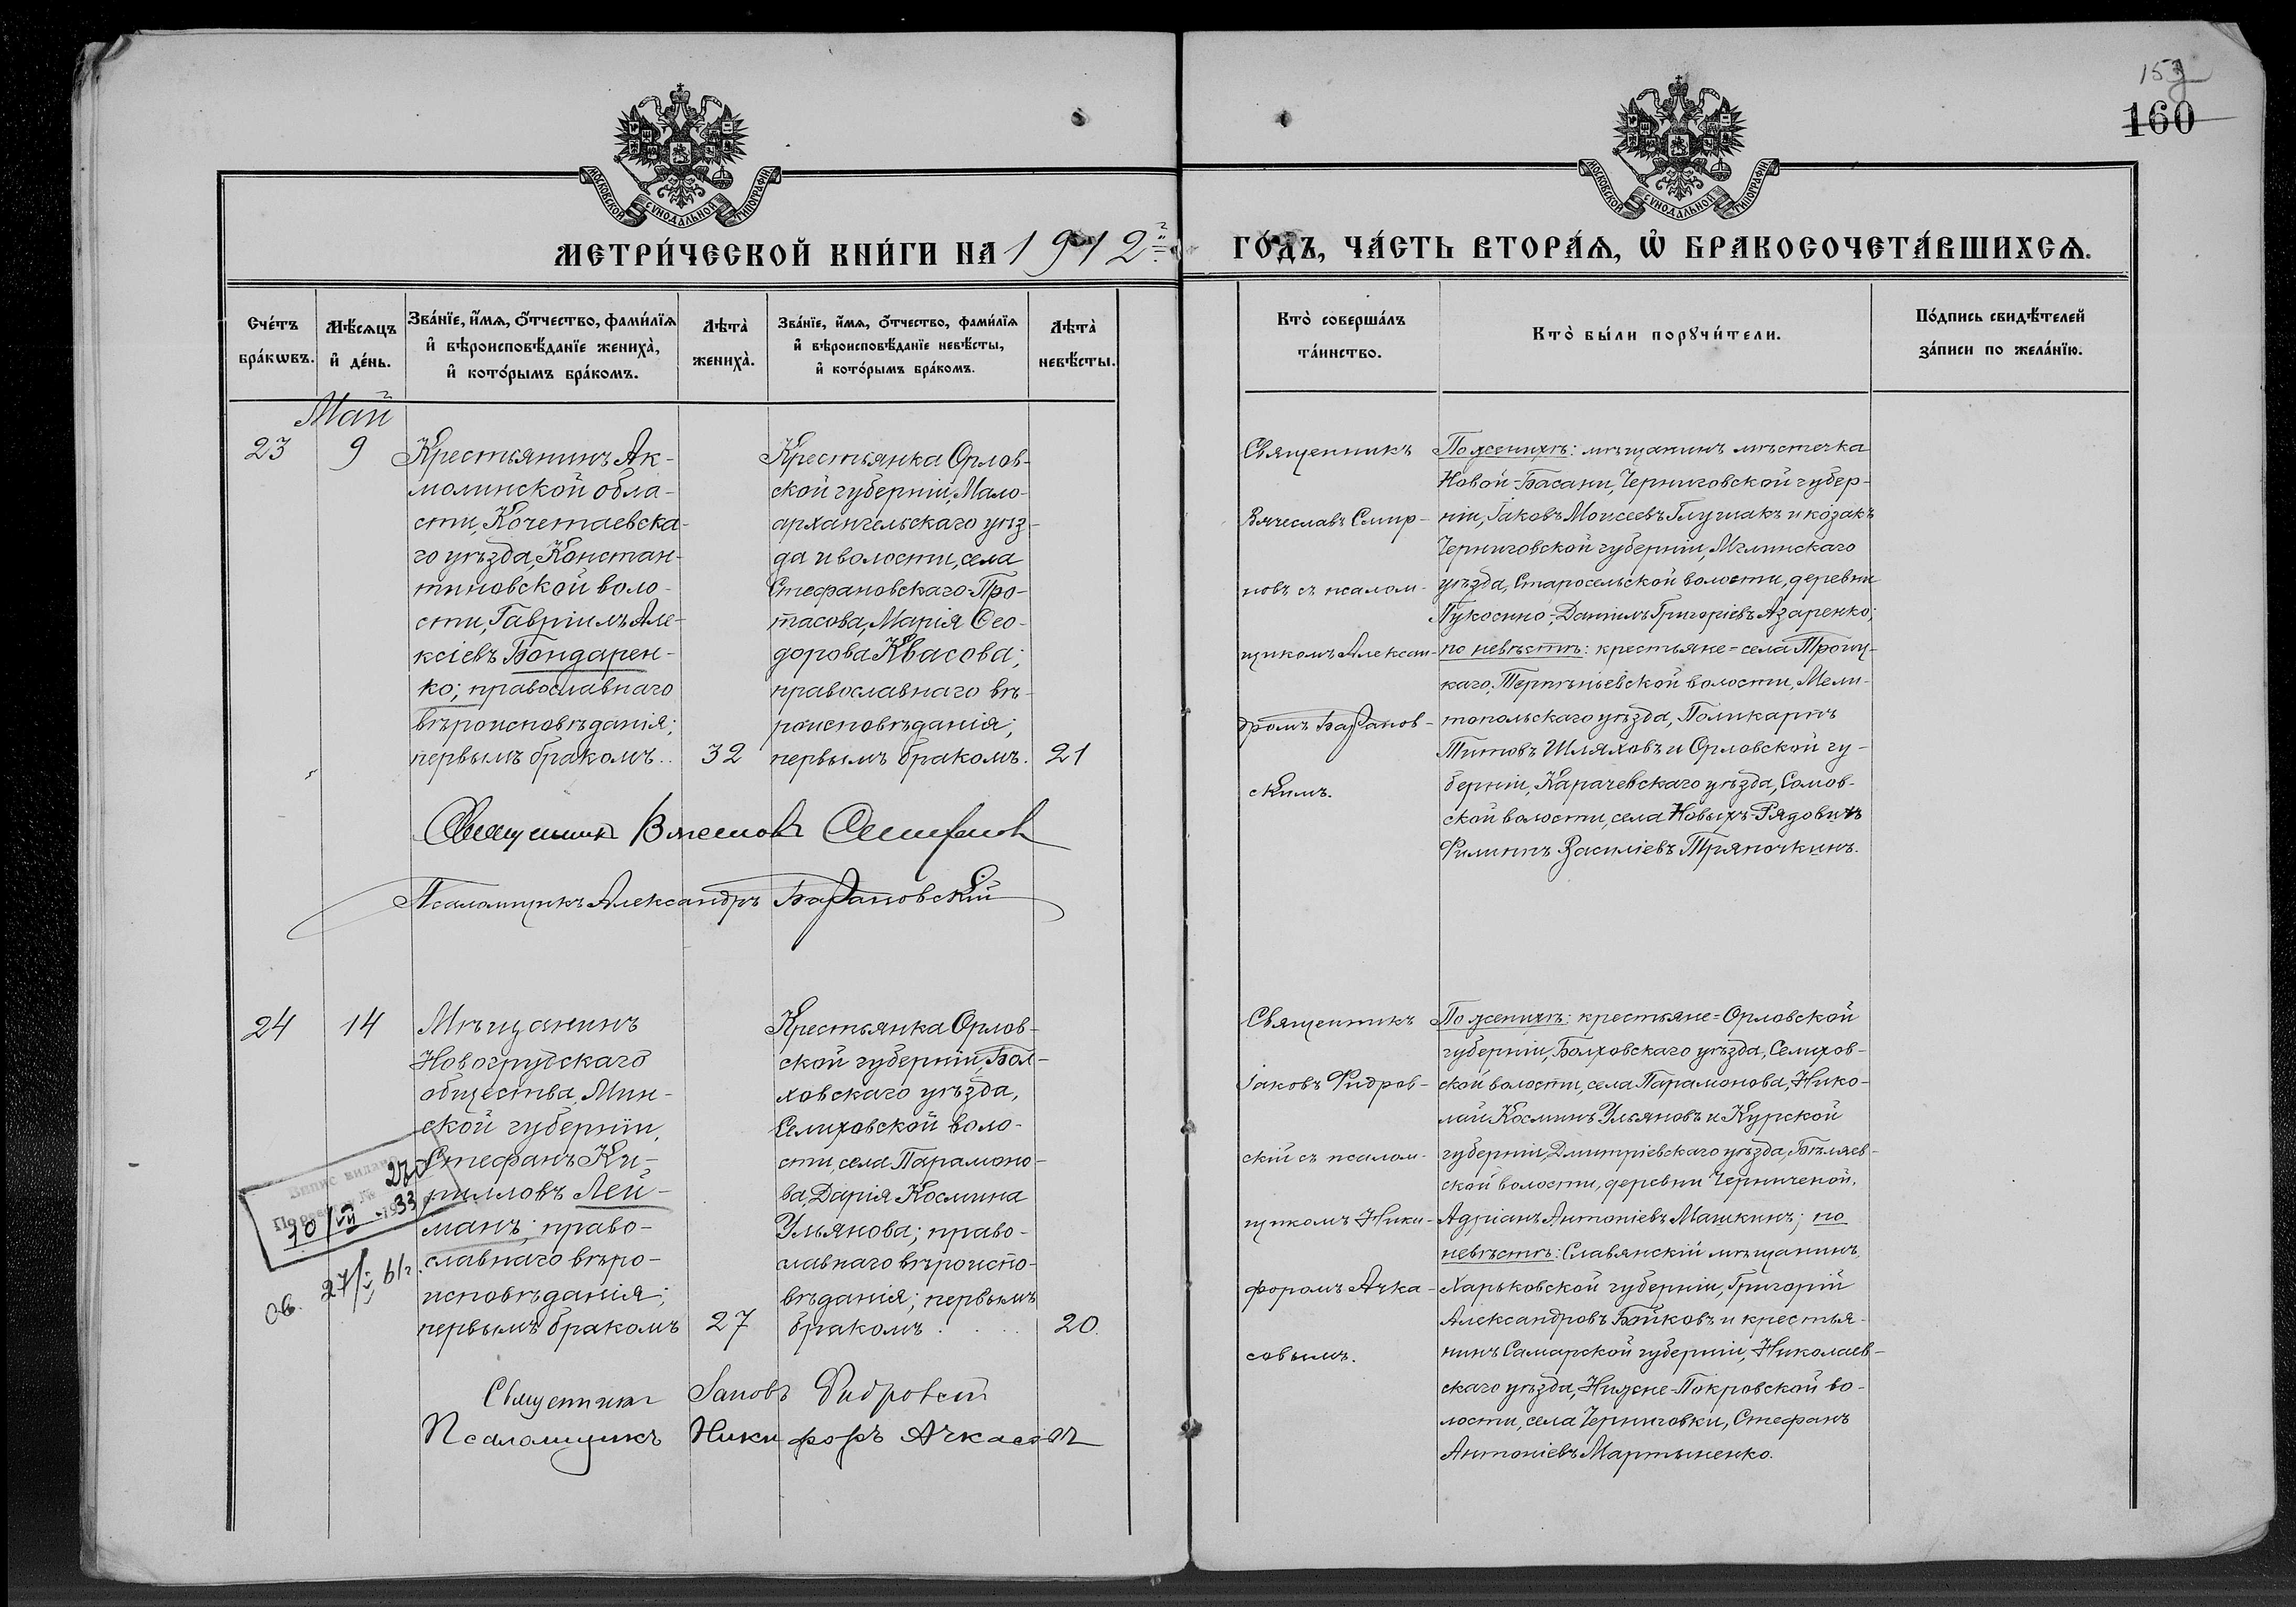 153
160
МОСКОВСКОЙ СѴНОДАЛЬНОЙ ТИПОГРАФІИ
МОСКОВСКОЙ СѴНОДАЛЬНОЙ ТИПОГРАФІИ
МЕТРИ́ЧЕСКОЙ КНИ́ГИ НА 1912 ГО́ДЪ, ЧА́СТЬ ВТОРА́Ѧ, Ѡ҆ БРАКОСОЧЕТА́ВШИХСѦ.
Сче́тъ
бра́кѡвъ.
Мѣ́сѧцъ
и҆ де́нь.
Зва́нїе, и҆́мѧ, ѻ҆́тчество, фами́лїѧ
и҆ вѣроисповѣ́данїе жениха̀,
и҆ кото́рымъ бра́комъ.
Лѣта̀
жениха̀.
Зва́нїе, и҆́мѧ, ѻ҆́тчество, фами́лїѧ
и҆ вѣроисповѣ́данїе невѣ́сты,
и҆ кото́рымъ бра́комъ.
Лѣта̀
невѣ́сты.
Кто̀ соверша́лъ
та́инство.
Кто̀ бы́ли порꙋчи́тели.
По́дпись свидѣ́телей
за́писи по жела́нїю.
Май
23
9
Крестьянинъ Ак-
молинской обла-
сти, Кочетаевска-
го уѣзда, Констан-
тиновской воло-
сти, Гавріилъ Але-
ксіевъ Бондарен-
ко; православнаго
вѣроисповѣданія;
первымъ бракомъ..
32
Крестьянка Орлов-
ской губерніи, Мало-
архангельскаго уѣз-
да и волости, села
Стефановскаго-Про-
тасова, Марія Ѳео-
дорова Квасова;
православнаго вѣ-
роисповѣданія;
первымъ бракомъ.
21
Священникъ
Вячеславъ Смир-
новъ съ псалом-
щикомъ Алексан-
дромъ Баранов-
скимъ.
По женихѣ: мѣщанинъ мѣстечка
Новой-Басани, Черниговской губер-
ніи, Іаковъ Моисеевъ Глушакъ и козакъ
Черниговской губерніи, Мглинскаго
уѣзда, Старосельской волости, деревни
Пукосино, Даніилъ Григоріевъ Азаренко;
по невѣстѣ: крестьяне=села Троиц-
каго, Терпѣніевской волости, Мели-
топольскаго уѣзда, Поликарпъ
Титовъ Шляховъ и Орловской гу-
берніи, Карачевскаго уѣзда, Сомов-
ской волости, села Новыхъ-Рядовичъ
Филиппъ Василіевъ Тряпочкинъ.
Священникъ Вячеславъ Смирновъ
Псаломщикъ Александръ Барановскій
24
14
Мѣщанинъ
Новогрудскаго
общества, Мин-
ской губерніи,
Стефанъ Ки-
рилловъ Лей-
манъ; право-
славнаго вѣро-
исповѣданія;
первымъ бракомъ
27
Крестьянка Орлов-
ской губерніи, Бол-
ховскаго уѣзда,
Селиховской воло-
сти, села Парамоно-
ва, Дарія Космина
Ульянова; право-
славнаго вѣроиспо-
вѣданія; первымъ
бракомъ . . . .
20.
Священникъ
Іаковъ Фидров-
скій съ псалом-
щикомъ Ники-
форомъ Ачка-
совымъ.
По женихѣ: крестьяне=Орловской
губерніи, Болховскаго уѣзда, Селихов-
ской волости, села Парамонова, Нико-
лай Косминъ Ульяновъ и Курской
губерніи, Дмитріевскаго уѣзда, Бѣляев-
ской волости, деревни Черниченой,
Адріанъ Антоніевъ Машкинъ; по
невѣстѣ: Славянскій мѣщанинъ,
Харьковской губерніи, Григорій
Александровъ Быковъ и крестья-
нинъ Самарской губерніи, Николаев-
скаго уѣзда, Нижне-Покровской во-
лости, села Черниговки, Стефанъ
Антоніевъ Мартыненко.
Випис видано
270
По реестру №
10/VII 1933
ов. 27/V 61г.
Священникъ Іаковъ Фидровскій
Псаломщикъ Никифоръ Ачкасовъ